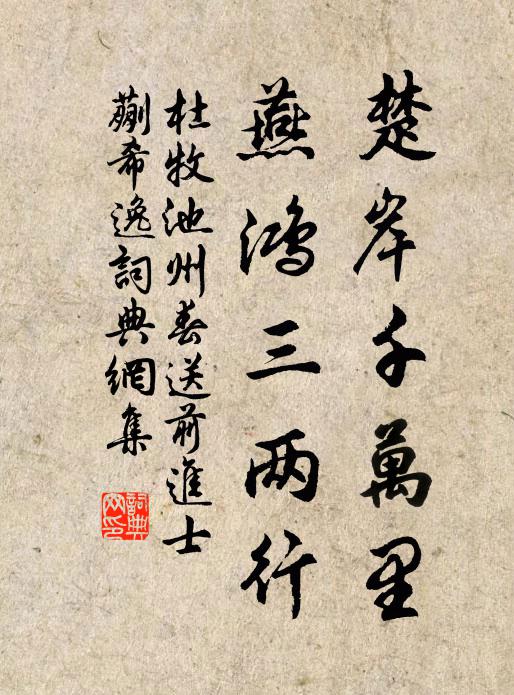 楚岸千萬里
燕鴻三两行
杜牧池州春送前進士
蒯希逸詞典網集
詞典网印